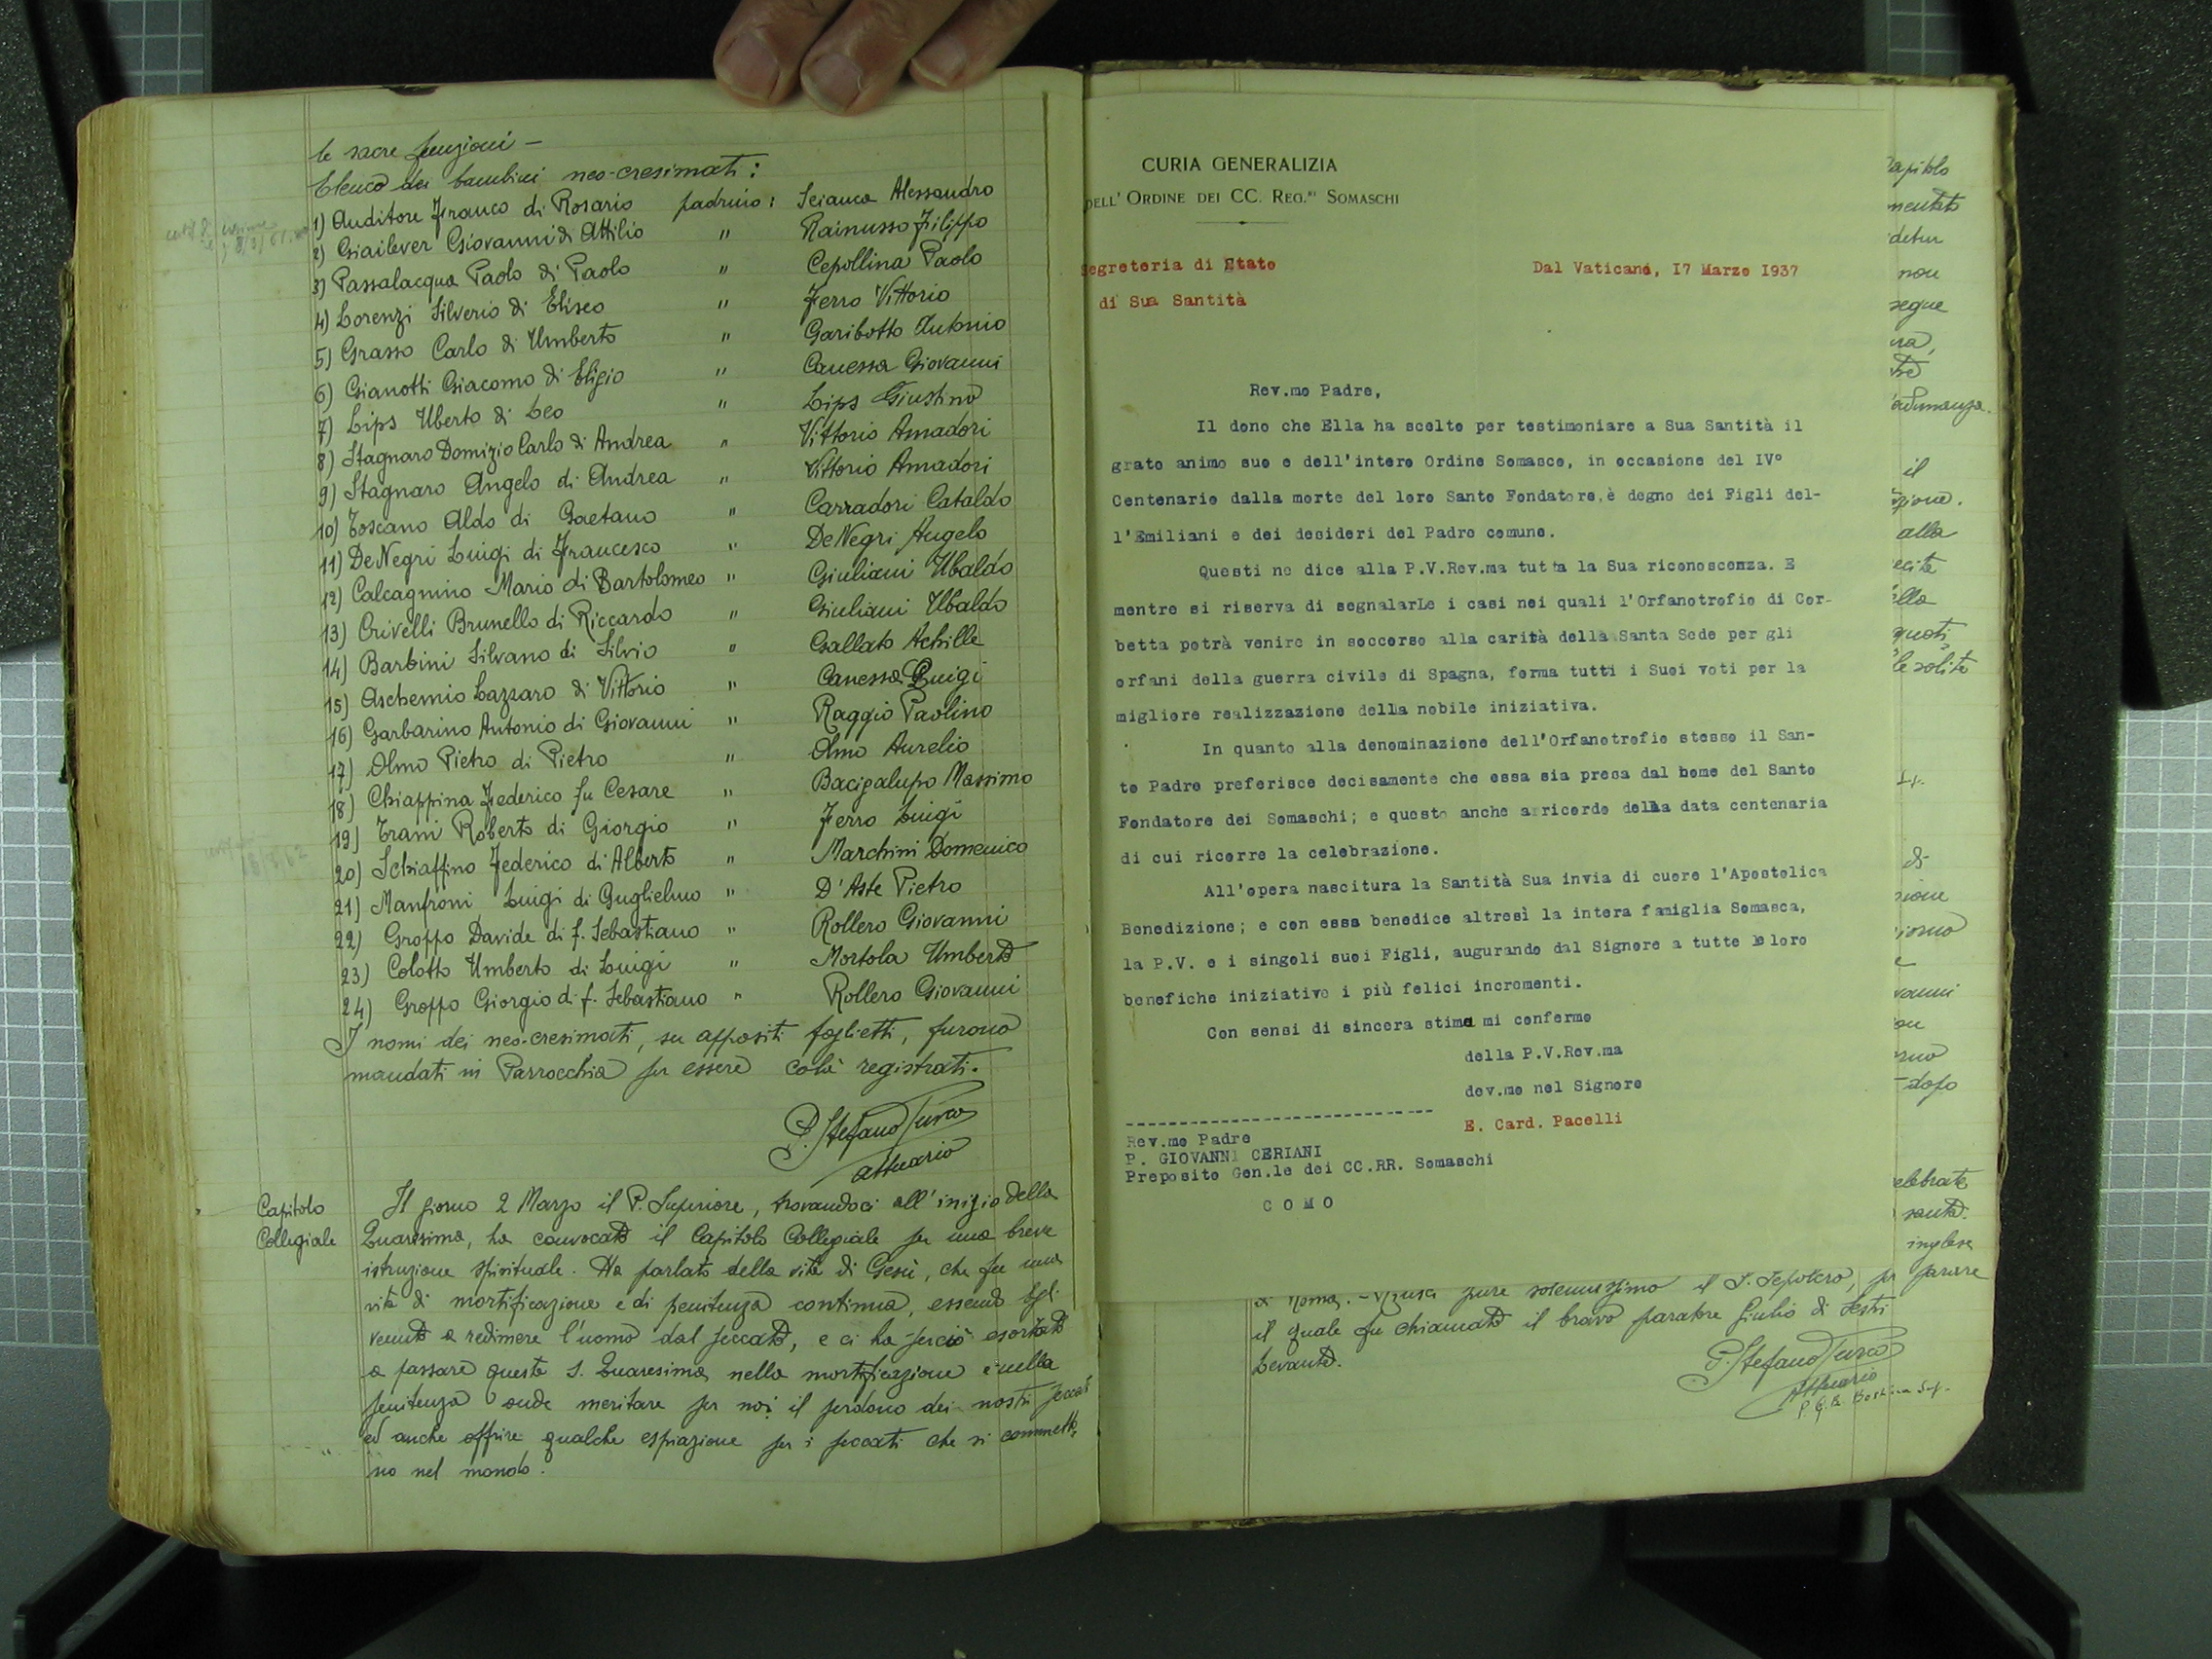 le sacre funzioni -
Elenco dei bambini neo-cresimati:
1) Auditore Franco di Rosario padrino: Scianca Alessandro
2) Giailever Giovanni di Attilio " Rainusso Filippo
3) Passalacqua Paolo di Paolo " Cepollina Paolo
4) Lorenzi Silverio di Eliseo " Ferro Vittorio
5) Grasso Carlo di Umberto " Garibotto Antonio
6) Gianotti Giacomo di Eligio " Canessa Giovanni
7) Lips Uberto di Leo " Lips Giustino
8) Stagnaro Domizio Carlo di Andrea " Vittorio Amadori
9) Stagnaro Angelo di Andrea " Vittorio Amadori
10) Toscano Aldo di Gaetano " Carradori Cataldo
11) De Negri Luigi di Francesco " De Negri Angelo
12) Calcagnino Mario di Bartolomeo " Giuliani Ubaldo
13) Crivelli Brunello di Riccardo " Giuliani Ubaldo
14) Barbini Silvano di Silvio " Gallato Achille
15) Aschernio Lazzaro di Vittorio " Canessa Luigi
16) Garbarino Antonio di Giovanni " Raggio Paolino
17) Olmo Pietro di Pietro " Olmo Aurelio
18) Chiappina Federico fu Cesare " Bacigalupo Massimo
19) Trani Roberto di Giorgio " Ferro Luigi
20) Schiaffino Federico di Alberto " Marchini Domenico
21) Manfroni Luigi di Guglielmo " D'Aste Pietro
22) Groppo Davide di f. Sebastiano " Rollero Giovanni
23) Colotto Umberto di Luigi " Mortola Umberto
24) Groppo Giorgio di f. Sebastiano " Rollero Giovanni
I nomi dei neo-cresimati, su appositi foglietti, furono
mandati in Parrocchia per essere colà registrati.
P. Stefano Turco
attuario
Capitolo
Collegiale
Il giorno 2 Marzo il P. Superiore, trovandoci all'inizio della
Quaresima, ha convocato il Capitolo Collegiale per una breve
istruzione spirituale. Ha parlato della vita di Gesù, che fu una
vita di mortificazione e di penitenza continua, essendo Egli
venuto a redimere l'uomo dal peccato, e ci ha perciò esortato
a passare questa S. Quaresima nella mortificazione e nella
penitenza onde meritare per noi il perdono dei nostri peccati
ed anche offrire qualche espiazione per i peccati che si commetto
no nel mondo.
CURIA GENERALIZIA
DELL' ORDINE DEI CC. REG.RI SOMASCHI
Segreteria di Stato
di Sua Santità
Dal Vaticano, 17 Marzo 1937
Rev.mo Padre,
Il dono che Ella ha scelto per testimoniare a Sua Santità il
grato animo suo e dell'intero Ordine Somasco, in occasione del IV°
Centenario dalla morte del loro Santo Fondatore, è degno dei Figli del-
l'Emiliani e dei desideri del Padre comune.
Questi ne dice alla P.V.Rev.ma tutta la Sua riconoscenza. E
mentre si riserva di segnalarLe i casi nei quali l'Orfanotrofio di Cor-
betta potrà venire in soccorso alla carità della Santa Sede per gli
orfani della guerra civile di Spagna, forma tutti i Suoi voti per la
migliore realizzazione della nobile iniziativa.
In quanto alla denominazione dell'Orfanotrofio stesso il San-
to Padre preferisce decisamente che essa sia presa dal bome del Santo
Fondatore dei Somaschi; e questo anche a ricordo della data centenaria
di cui ricorre la celebrazione.
All'opera nascitura la Santità Sua invia di cuore l'Apostolica
Benedizione; e con essa benedice altresì la intera famiglia Somasca,
la P.V. e i singoli suoi Figli, augurando dal Signore a tutte le loro
benefiche iniziative i più felici incrementi.
Con sensi di sincera stima mi confermo
della P.V.Rev.ma
dev.mo nel Signore
E. Card. Pacelli
Rev.mo Padre
P. GIOVANNI CERIANI
Preposito Gen.le dei CC.RR. Somaschi
COMO
di Roma. - pure solennissimo il S. Sepolcro, per parare
il quale fu chiamato il bravo paratore Giulio di Sestri
Levante.
P. Stefano Turco
Attuario